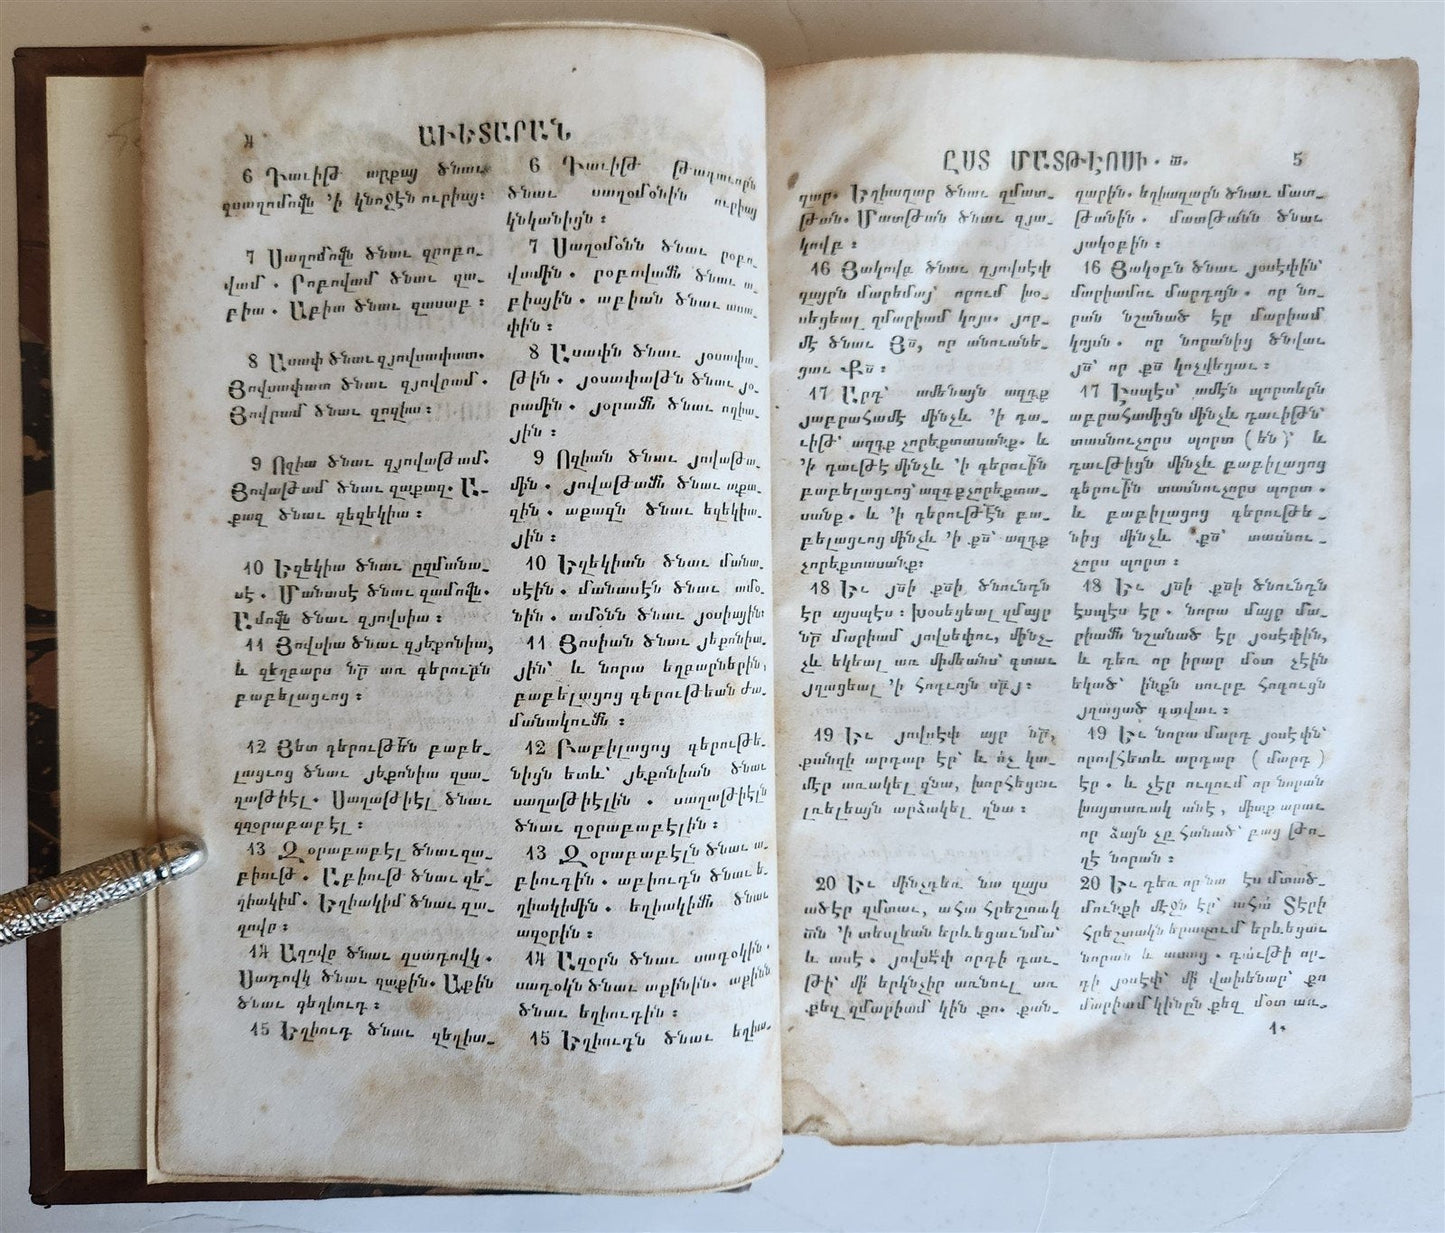 ԱՒԵՏԱՐԱՆ
6 Դաւիթ արքայ ծնաւ
զսաղոմովն ՚ի կնոջէն ուրիայ։
7 Սաղոմովն ծնաւ զրոբո֊
վամ. Րոբովամ ծնաւ զա֊
բիա. Աբիա ծնաւ զասաբ։
8 Ասափ ծնաւ զյովսափատ.
Յովսափատ ծնաւ զյովրամ.
Յովրամ ծնաւ զոզիա։
9 Ոզիա ծնաւ զյովաթամ.
Յովաթամ ծնաւ զաքազ. Ա֊
քազ ծնաւ զեզեկիա։
10 Եզեկիա ծնաւ ըզմանա֊
սէ. Մանասէ ծնաւ զամովն.
Ամովն ծնաւ զյովսիա։
11 Յովսիա ծնաւ զյեքոնիա,
և զեղբարս նր առ գերութբն
բաբելացւոց։
12 Յետ գերութեն բաբե֊
լացւոց ծնաւ յեքոնիա զսա֊
ղաթիէլ. Սաղաթիէլ ծնաւ
զզօրաբաբէլ։
13 Զօրաբաբէլ ծնաւ զա֊
բիութ. Աբիութ ծնաւ զե֊
ղիակիմ. Եղիակիմ ծնաւ զա֊
զովր։
14 Ազովր ծնաւ զսադովկ.
Սադովկ ծնաւ զաքին. Աքին
ծնաւ զեղիուդ։
15 Եղիուդ ծնաւ զեղիա֊
6 Դաւիթ թագաւորն
ծնաւ սաղօմօնին ուրիայ
կնկանիցն։
7 Սաղօմօնն ծնաւ րօբո֊
վամին. րօբովամն ծնաւ ա֊
բիային. աբիան ծնաւ ասա֊
փին։
8 Ասափն ծնաւ յօսափա֊
թին. յօսափաթն ծնաւ յօ֊
րամին. յօրամն ծնաւ ոզիա֊
յին։
9 Ոզիան ծնաւ յովաթա֊
մին. յովաթամն ծնաւ աքա֊
զին. աքազն ծնաւ եզեկիա֊
յին։
10 Եզեկիան ծնաւ մանա֊
սէին. մանասէն ծնաւ ամօ֊
նին. ամօնն ծնաւ յօսիային։
11 Յոսիան ծնաւ յեքոնիա֊
յին՝ և նորա եղբարներին,
բաբելացոց գերութեան ժա֊
մանակումն։
12 Բաբիլացոց գերութե֊
նիցն ետև՝ յեքոնիան ծնաւ
սաղաթիէլին. սաղաթիէլն
ծնաւ զօրաբաբէլին։
13 Զօրաբաբէլն ծնաւ ա֊
բիուդին. աբիուդն ծնաւ ե֊
ղիակիմին. եղիակիմն ծնաւ
ազօրին։
14 Ազօրն ծնաւ սադօկին.
սադօկն ծնաւ աքինին. աքինն
ծնաւ եղիուդին։
15 Եղիուդն ծնաւ եղիա֊
ԸՍՏ ՄԱՏԹԷՈՍԻ. ա. 5
զար. Եղիազար ծնաւ զմատ֊
թան. Մատթան ծնաւ զյա֊
կովբ։
16 Յակովբ ծնաւ զյովսէփ
զայրն մարեմայ՝ որում խօ֊
սեցեալ զմարիամ կոյս. յոր֊
մէ ծնաւ Յս, որ անուանե֊
ցաւ Քս։
17 Արդ՝ ամենայն ազգք
յաբրահամէ մինչև ՚ի դա֊
ւիթ՝ ազգք չորեքտասանք. և
՚ի դաւթէ մինչև ՚ի գերուին
բաբելացւոց՝ ազգք չորեքտա֊
սանք. և ՚ի գերութէն բա֊
բելացւոց մինչև ՚ի քս՝ ազգք
չորեքտասանք։
18 Եւ յսի քսի ծնունդն
էր այսպէս։ Խօսեցեալ զմայր
նր մարիամ յովսեփու, մինչ֊
չև եկեալ առ միմեանս՝ գտաւ
յղացեալ ՚ի Հոգւոյն սրյ։
19 Եւ յովսէփ այր նր,
քանզի արդար էր՝ և ոչ կա֊
մէր առակել զնա, խորհեցաւ
լռելեայն արձակել զնա։
20 Եւ մինչդեռ նա զայս
ածէր զմտաւ, ահա հրեշտակ
տն ՚ի տեսլեան երևեցաւ նմա՝
և ասէ. յովսէփ որդի դաւ֊
թի՝ մի երկնչիր առնուլ առ
քեզ զմարիամ՝ կին քո. քան֊
զարին. եղիազարն ծնաւ մատ֊
թանին. մատթանն ծնաւ
յակօբին։
16 Յակօբն ծնաւ յօսէփին՝
մարիամու մարդոյն. որ նո֊
րան նշանած էր մարիամ
կոյսն. որ նորանից ծնվաւ
յս՝ որ քս կոչվեցաւ։
17 Էսպէս՝ ամէն պորտերն
աբրահամիցն մինչև դաւիթն՝
տասնուչորս պորտ (են)՝ և
դաւթիցն մինչև բաբիլացոց
գերուին տասնուչորս պորտ.
և բաբիլացոց գերութե֊
նից մինչև քս՝ տասնու֊
չորս պորտ։
18 Եւ յսի քսի ծնունդն
էսպէս էր. նորա մայր մա֊
րիամն նշանած էր յօսէփին,
և դեռ որ իրար մօտ չէին
եկած՝ ինքն սուրբ Հոգուցն
յղացած գտվաւ։
19 Եւ նորա մարդ յօսէփն՝
որովհետև արդար (մարդ)
էր. և չէր ուզում որ նորան
խայտառակ անէ, միտք արաւ
որ ձայն չը հանած՝ բաց թո֊
ղէ նորան։
20 Եւ դեռ որ նա էս մտած֊
մունքի մէջն էր՝ ահա Տէրի
հրեշտակն երազում երևեցաւ
նորան և ասաց. դաւթի որ֊
դի յօսէփ՝ մի վախենար՝ քո
մարիամ կինըն քեզ մօտ առ֊
1.